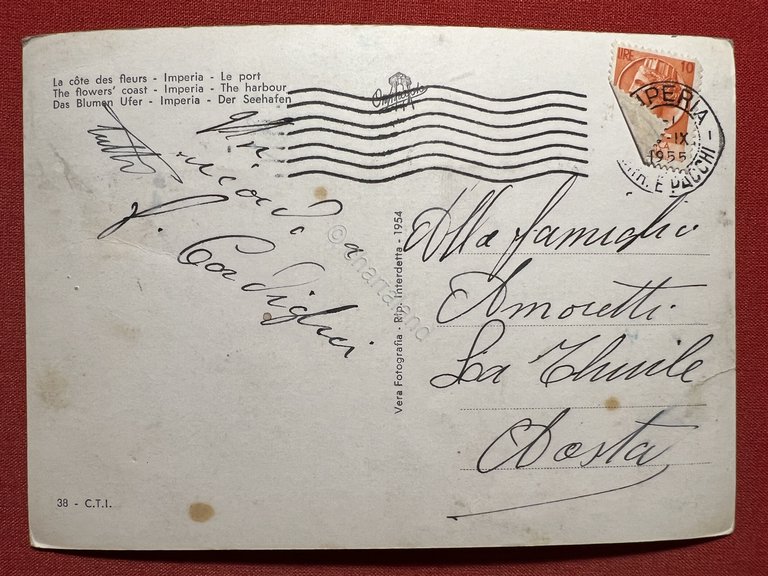 La côte des fleurs - Imperia - Le port
The flowers' coast - Imperia - The harbour
Das Blumen Ufer - Imperia - Der Seehafen
LIRE 10
IMPERIA
-IX
1955
E PACCHI
tutti
ricorda a
Alla famiglia
Amoretti
La Thuile
Aosta
Vera Fotografia - Rip. Interdetta - 1954
© anamaland
38 - C.T.I.